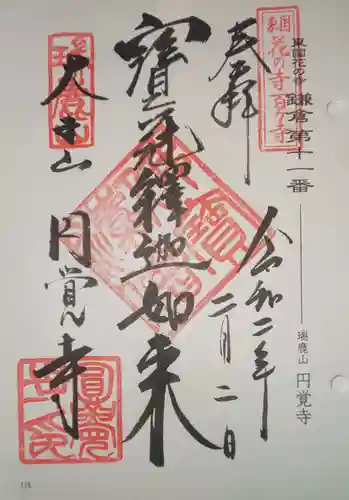 東国花の寺
鎌倉第十一番
瑞鹿山 円覚寺
東国花の寺百ヶ寺
奉拝
令和二年
二月二日
寳冠釋迦如来
大本山
円覚寺
116